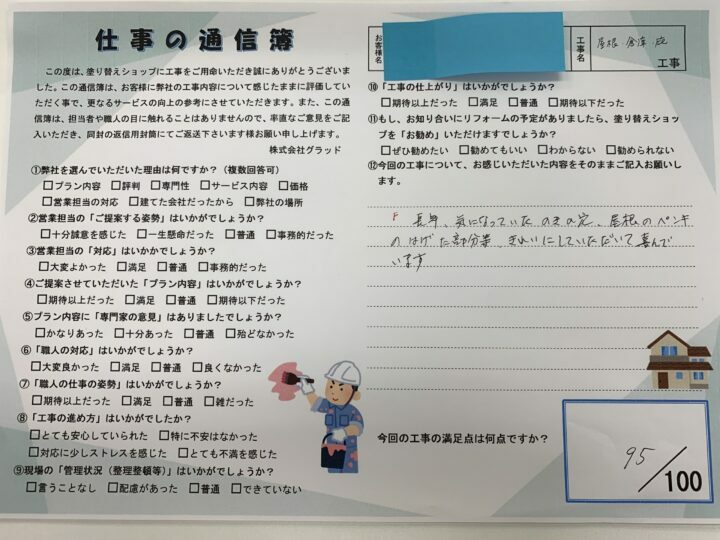 仕事の通信簿
この度は、塗り替えショップに工事をご用命いただき誠にありがとうございま
した。この通信簿は、お客様に弊社の工事内容について感じたままに評価してい
ただく事で、更なるサービスの向上の参考にさせていただきます。また、この通
信簿は、担当者や職人の目に触れることはありませんので、率直なご意見をご記
入いただき、同封の返信用封筒にてご返送下さいます様お願い申し上げます。
株式会社グラッド
①弊社を選んでいただいた理由は何ですか？（複数回答可）
□プラン内容 □評判 □専門性 □サービス内容 □価格
□営業担当の対応 □建てた会社だったから □弊社の場所
②営業担当の「ご提案する姿勢」はいかがでしょうか？
□十分誠意を感じた □一生懸命だった □普通 □事務的だった
③営業担当の「対応」はいかがでしょうか？
□大変よかった □満足 □普通 □事務的だった
④ご提案させていただいた「プラン内容」はいかがでしょうか？
□期待以上だった □満足 □普通 □期待以下だった
⑤プラン内容に「専門家の意見」はありましたでしょうか？
□かなりあった □十分あった □普通 □殆どなかった
⑥「職人の対応」はいかがでしょうか？
□大変良かった □満足 □普通 □良くなかった
⑦「職人の仕事の姿勢」はいかがでしょうか？
□期待以上だった □満足 □普通 □雑だった
⑧「工事の進め方」はいかがでしたか？
□とても安心していられた □特に不安はなかった
□対応に少しストレスを感じた □とても不満を感じた
⑨現場の「管理状況（整理整頓等）」はいかがでしょうか？
□言うことなし □配慮があった □普通 □できていない
お客様名
工事名
屋根
工事
⑩「工事の仕上がり」はいかがでしょうか？
□期待以上だった □満足 □普通 □期待以下だった
⑪もし、お知り合いにリフォームの予定がありましたら、塗り替えショッ
プを「お勧め」いただけますでしょうか？
□ぜひ勧めたい □勧めてもいい □わからない □勧められない
⑫今回の工事について、お感じいただいた内容をそのままご記入お願いし
ます。
長年、気になっていた のきの穴、屋根のペンキ
のはげた部分等、きれいにしていただいて喜んで
います
今回の工事の満足点は何点ですか？
95/100